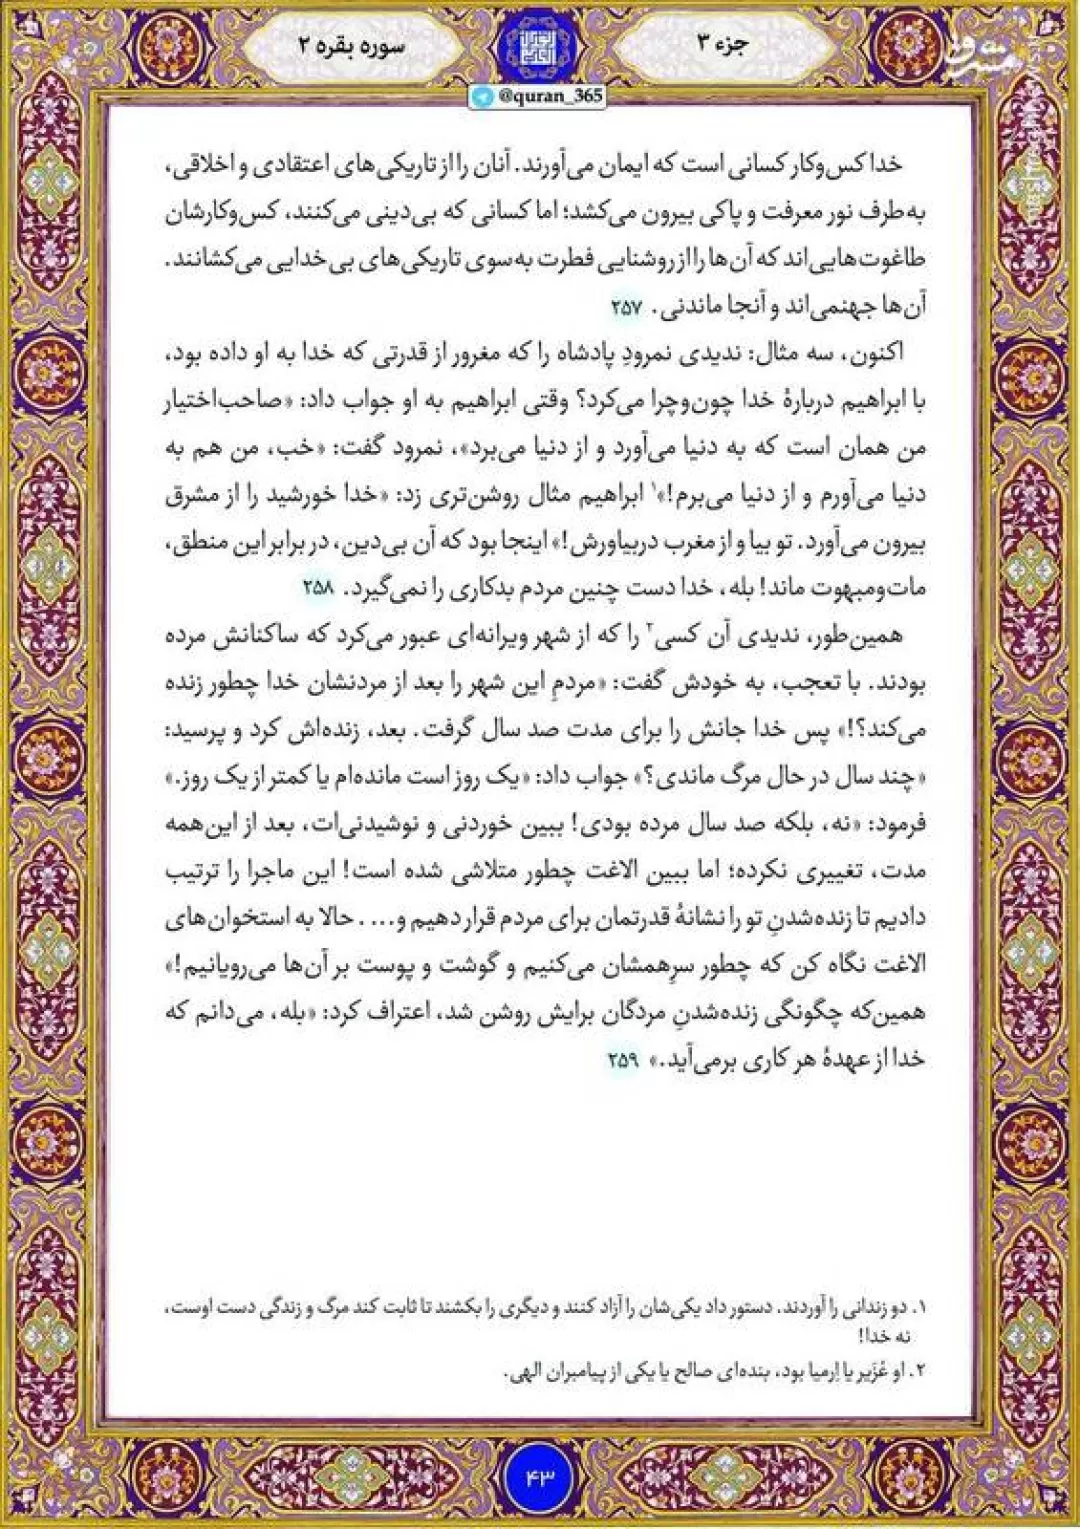 جزء ۳
سوره بقره ۲
@quran_365
مشرق
خدا کس‌وکار کسانی است که ایمان می‌آورند. آنان را از تاریکی‌های اعتقادی و اخلاقی،
به‌طرف نور معرفت و پاکی بیرون می‌کشد؛ اما کسانی که بی‌دینی می‌کنند، کس‌وکارشان
طاغوت‌هایی‌اند که آن‌ها را از روشنایی فطرت به‌سوی تاریکی‌های بی‌خدایی می‌کشانند.
آن‌ها جهنمی‌اند و آنجا ماندنی. ۲۵۷
اکنون، سه مثال: ندیدی نمرودِ پادشاه را که مغرور از قدرتی که خدا به او داده بود،
با ابراهیم دربارهٔ خدا چون‌وچرا می‌کرد؟ وقتی ابراهیم به او جواب داد: «صاحب‌اختیار
من همان است که به دنیا می‌آورد و از دنیا می‌برد»، نمرود گفت: «خب، من هم به
دنیا می‌آورم و از دنیا می‌برم!»۱ ابراهیم مثال روشن‌تری زد: «خدا خورشید را از مشرق
بیرون می‌آورد. تو بیا و از مغرب دربیاورش!» اینجا بود که آن بی‌دین، در برابر این منطق،
مات‌ومبهوت ماند! بله، خدا دست چنین مردم بدکاری را نمی‌گیرد. ۲۵۸
همین‌طور، ندیدی آن کسی۲ را که از شهر ویرانه‌ای عبور می‌کرد که ساکنانش مرده
بودند. با تعجب، به خودش گفت: «مردمِ این شهر را بعد از مردنشان خدا چطور زنده
می‌کند؟!» پس خدا جانش را برای مدت صد سال گرفت. بعد، زنده‌اش کرد و پرسید:
«چند سال در حال مرگ ماندی؟» جواب داد: «یک روز است مانده‌ام یا کمتر از یک روز.»
فرمود: «نه، بلکه صد سال مرده بودی! ببین خوردنی و نوشیدنی‌ات، بعد از این‌همه
مدت، تغییری نکرده؛ اما ببین الاغت چطور متلاشی شده است! این ماجرا را ترتیب
دادیم تا زنده‌شدنِ تو را نشانهٔ قدرتمان برای مردم قرار دهیم و.... حالا به استخوان‌های
الاغت نگاه کن که چطور سرِهمشان می‌کنیم و گوشت و پوست بر آن‌ها می‌رویانیم!»
همین‌که چگونگی زنده‌شدنِ مردگان برایش روشن شد، اعتراف کرد: «بله، می‌دانم که
خدا از عهدهٔ هر کاری برمی‌آید.» ۲۵۹
۱. دو زندانی را آوردند. دستور داد یکی‌شان را آزاد کنند و دیگری را بکشند تا ثابت کند مرگ و زندگی دست اوست،
نه خدا!
۲. او عُزَیر یا اِرمیا بود، بنده‌ای صالح یا یکی از پیامبران الهی.
۴۳